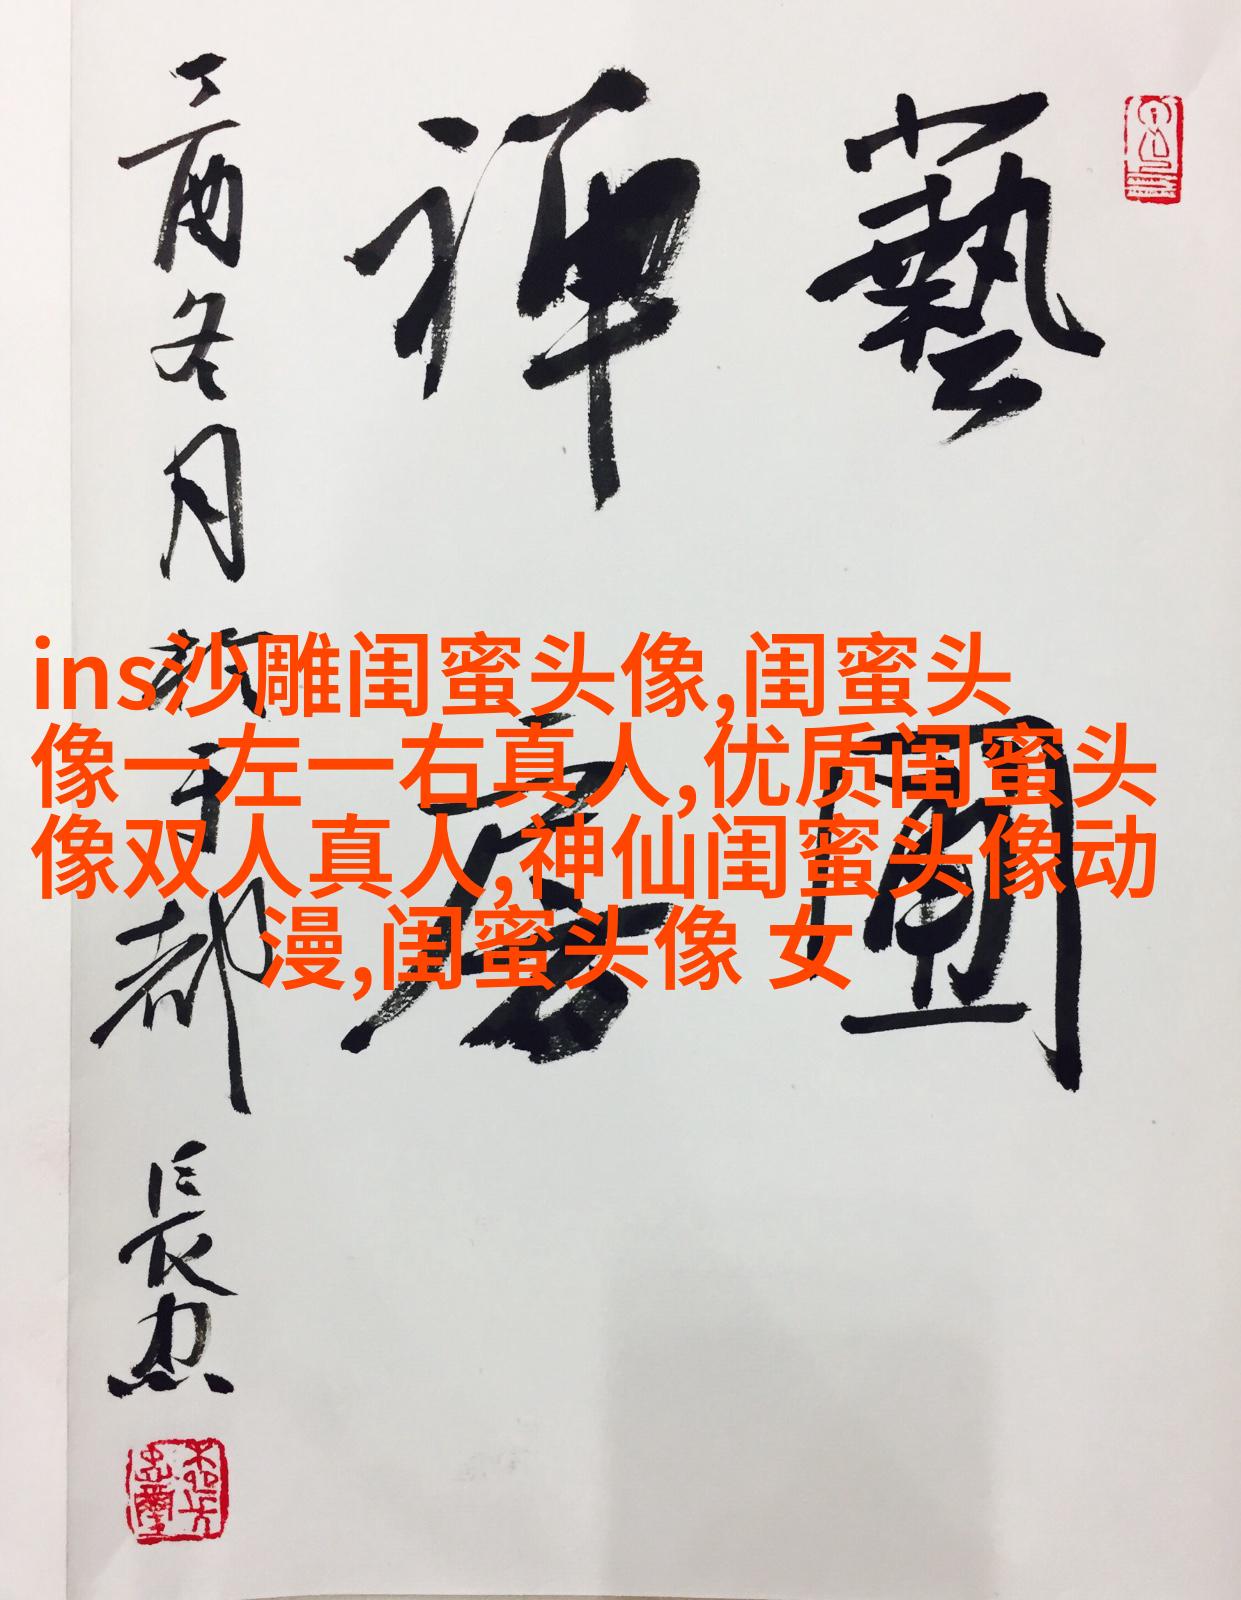 藝圃
禪唐
丁酉冬月
于都
長忠
ins沙雕闺蜜头像,闺蜜头
像一左一右真人,优质闺蜜头
像双人真人,神仙闺蜜头像动
漫,闺蜜头像 女